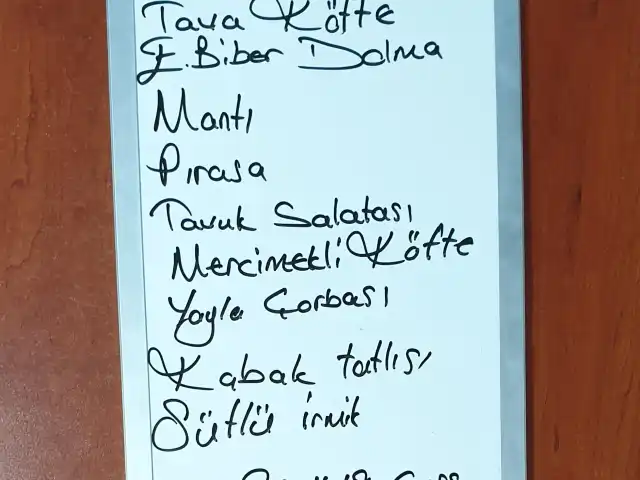 Tava Köfte
E.Biber Dolma
Mantı
Pırasa
Tavuk Salatası
Mercimekli Köfte
Yayla Çorbası
Kabak tatlısı
Sütlü irmik